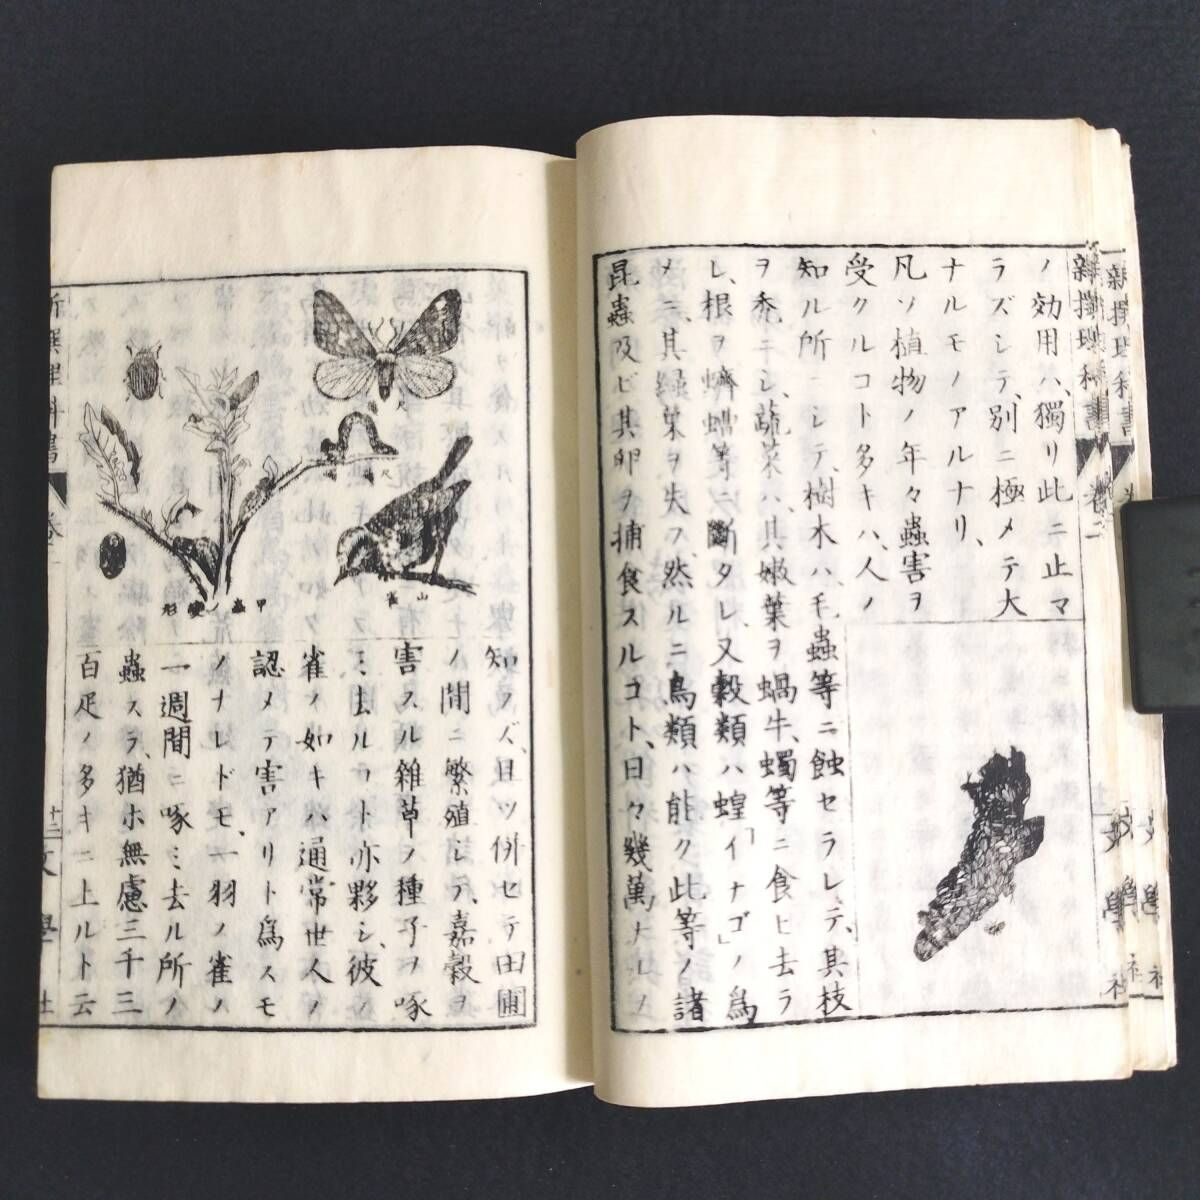 ノ効用ハ、獨リ此ニ止マ
ラズシテ、別ニ極メテ大
ナルモノアルナリ、
凡ソ植物ノ年々蟲害ヲ
受クルコト多キハ、人ノ
知ル所ニシテ、樹木ハ、毛蟲等ニ蝕セラレテ、其枝
ヲ禿ニシ、蔬菜ハ、其嫩葉ヲ蝸牛、蠋等ニ食ヒ去ラ
レ、根ヲ蠐螬等ニ斷タレ、又穀類ハ蝗「イナゴ」ノ爲
メニ、其緑葉ヲ失フ、然ルニ鳥類ハ能ク此等ノ諸
昆蟲及ビ其卵ヲ捕食スルコト、日々幾萬ナルヲ
新撰理科書
卷二
文學社
山雀
甲蟲ノ變形
知ラズ、且ツ併セテ田圃
ノ間ニ繁殖シテ、嘉穀ヲ
害スル雑草ノ種子ヲ啄
ミ去ルコト亦夥シ、彼ノ
雀ノ如キハ通常世人ノ
認メテ害アリト爲スモ
ノナレドモ、一羽ノ雀ノ
一週間ニ啄ミ去ル所ノ
蟲スラ、猶ホ無慮三千三
百疋ノ多キニ上ルト云
新撰理科書
卷二
十二
文學社